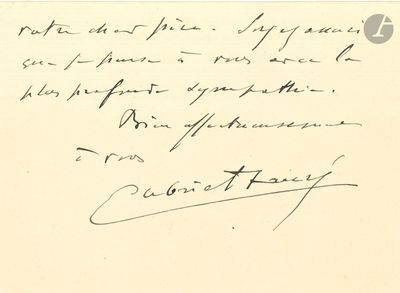 votre cher père. Soyez assuré
que je pense à vous avec la
plus profonde sympathie.
Bien affectueusement
à vous
Gabriel Fauré